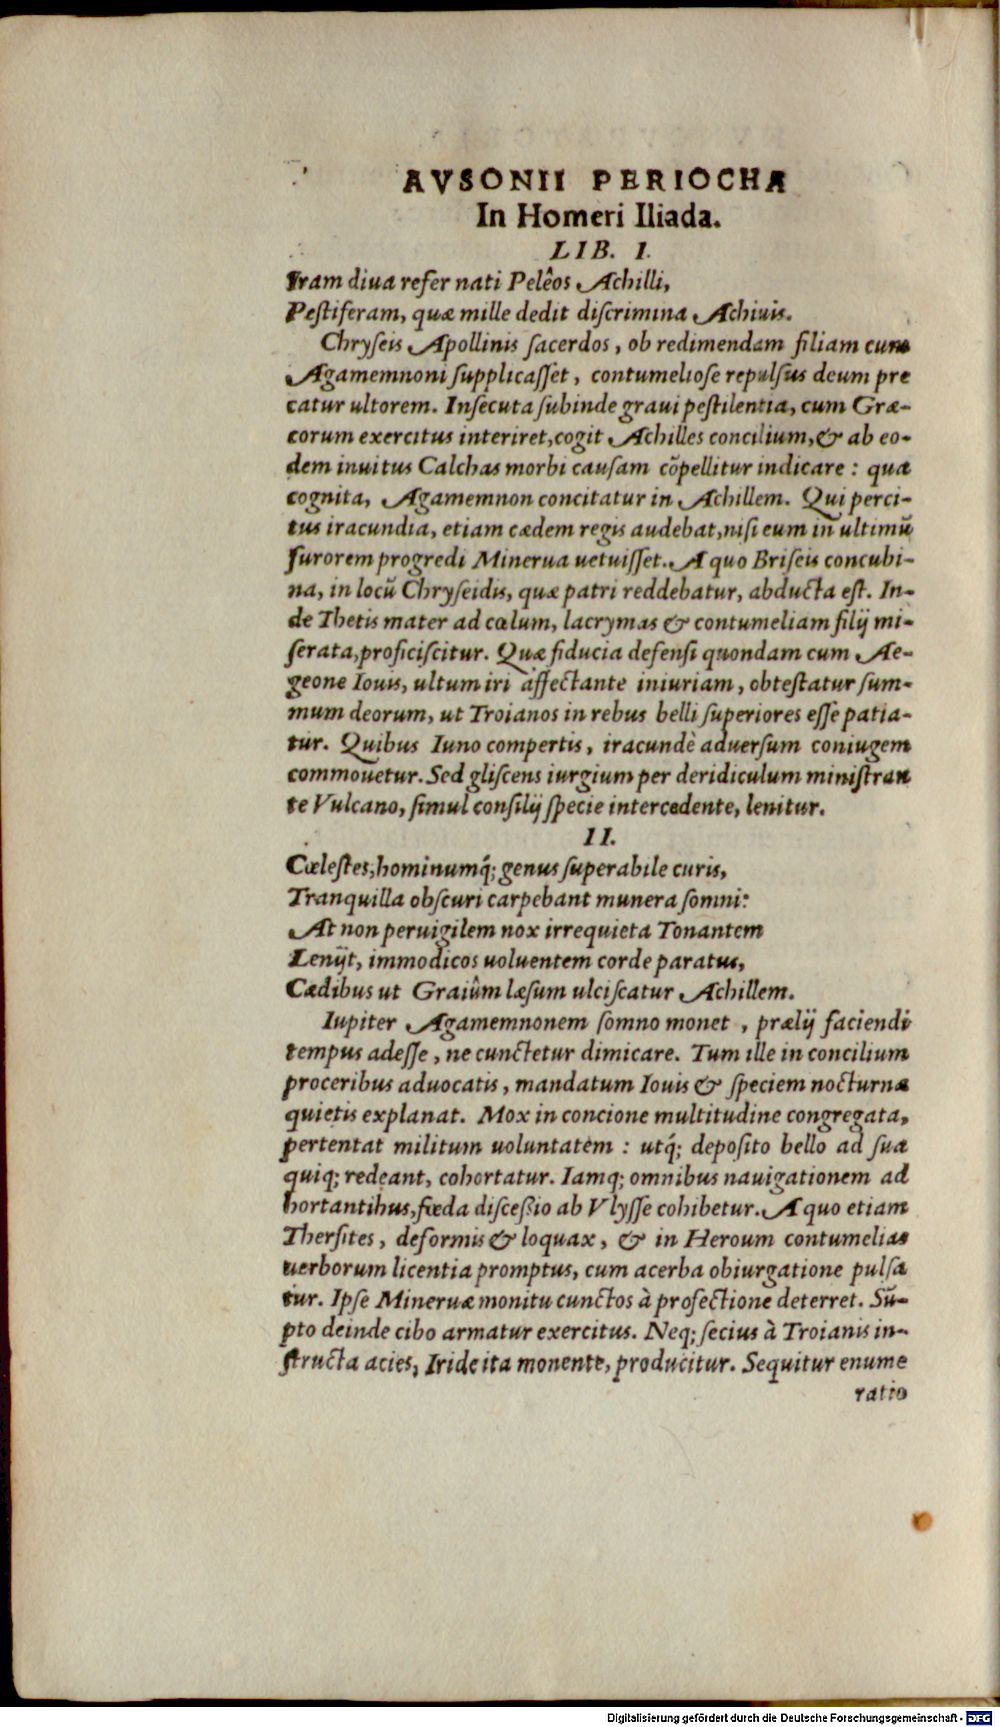 AVSONII PERIOCHA
In Homeri Iliada.
LIB. I.
Iram diua refer nati Pelêos Achilli,
Pestiferam, quæ mille dedit discrimina Achiuis.
Chryseis Apollinis sacerdos, ob redimendam filiam cum
Agamemnoni supplicasset, contumeliose repulsus deum pre
catur ultorem. Insecuta subinde graui pestilentia, cum Græ-
corum exercitus interiret, cogit Achilles concilium, & ab eo-
dem inuitus Calchas morbi causam cõpellitur indicare: qua
cognita, Agamemnon concitatur in Achillem. Qui perci-
tus iracundia, etiam cædem regis audebat, nisi eum in ultimũ
furorem progredi Minerua uetuisset. A quo Briseis concubi-
na, in locũ Chryseidis, quæ patri reddebatur, abducta est. In-
de Thetis mater ad cœlum, lacrymas & contumeliam filij mi-
serata, proficiscitur. Quæ fiducia defensi quondam cum Ae-
geone Iouis, ultum iri affectante iniuriam, obtestatur sum-
mum deorum, ut Troianos in rebus belli superiores esse patia-
tur. Quibus Iuno compertis, iracundè aduersum coniugem
commouetur. Sed gliscens iurgium per deridiculum ministran
te Vulcano, simul consilij specie intercedente, lenitur.
II.
Cœlestes, hominumq́; genus superabile curis,
Tranquilla obscuri carpebant munera somni:
At non peruigilem nox irrequieta Tonantem
Lenijt, immodicos uoluentem corde paratus,
Cædibus ut Graiûm læsum ulciscatur Achillem.
Iupiter Agamemnonem somno monet, prælij faciendi
tempus adesse, ne cunctetur dimicare. Tum ille in concilium
proceribus aduocatis, mandatum Iouis & speciem nocturnæ
quietis explanat. Mox in concione multitudine congregata,
pertentat militum uoluntatem: utq́; deposito bello ad sua
quiq; redeant, cohortatur. Iamq; omnibus nauigationem ad
hortantibus, fœda discessio ab Vlysse cohibetur. A quo etiam
Thersites, deformis & loquax, & in Heroum contumelias
uerborum licentia promptus, cum acerba obiurgatione pulsa
tur. Ipse Mineruæ monitu cunctos à profectione deterret. Sũ-
pto deinde cibo armatur exercitus. Neq; secius à Troianis in-
structa acies, Iride ita monente, producitur. Sequitur enume
ratio
Digitalisierung gefördert durch die Deutsche Forschungsgemeinschaft - DFG